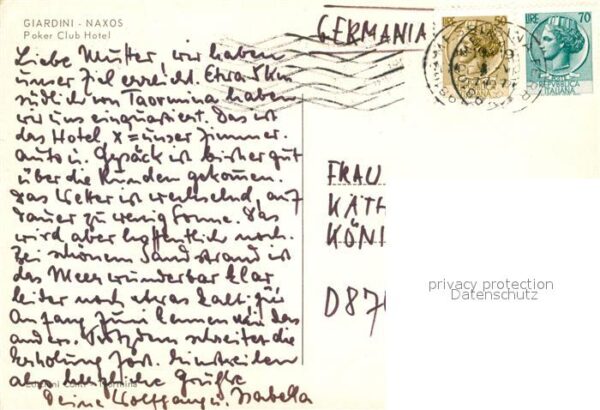 GIARDINI - NAXOS
Poker Club Hotel
GERMANIA
LIRE 50
LIRE 70
REPUBBLICA
ITALIANA
Liebe Mutter, wir haben
unser Ziel erreicht. Etwa 5 km
südlich von Taormina haben
wir uns einquartiert. Das ist
das Hotel x = unser Zimmer.
Auto u. Gepäck ist bisher gut
über die Runden gekommen.
Das Wetter ist wechselnd, auf
Dauer zu wenig Sonne. Das
wird aber hoffentlich noch.
Bei schönem Sandstrand ist
das Meer wunderbar klar
leider noch etwas kalt. für
Anfang Juni kennen wir das
anders. Trotzdem schreitet die
Erholung fort. Einstweilen
also herzliche Grüße
Deine Wolfgang u. Isabella
FRAU
KÄTH
KÖNI
D87
privacy protection
Datenschutz